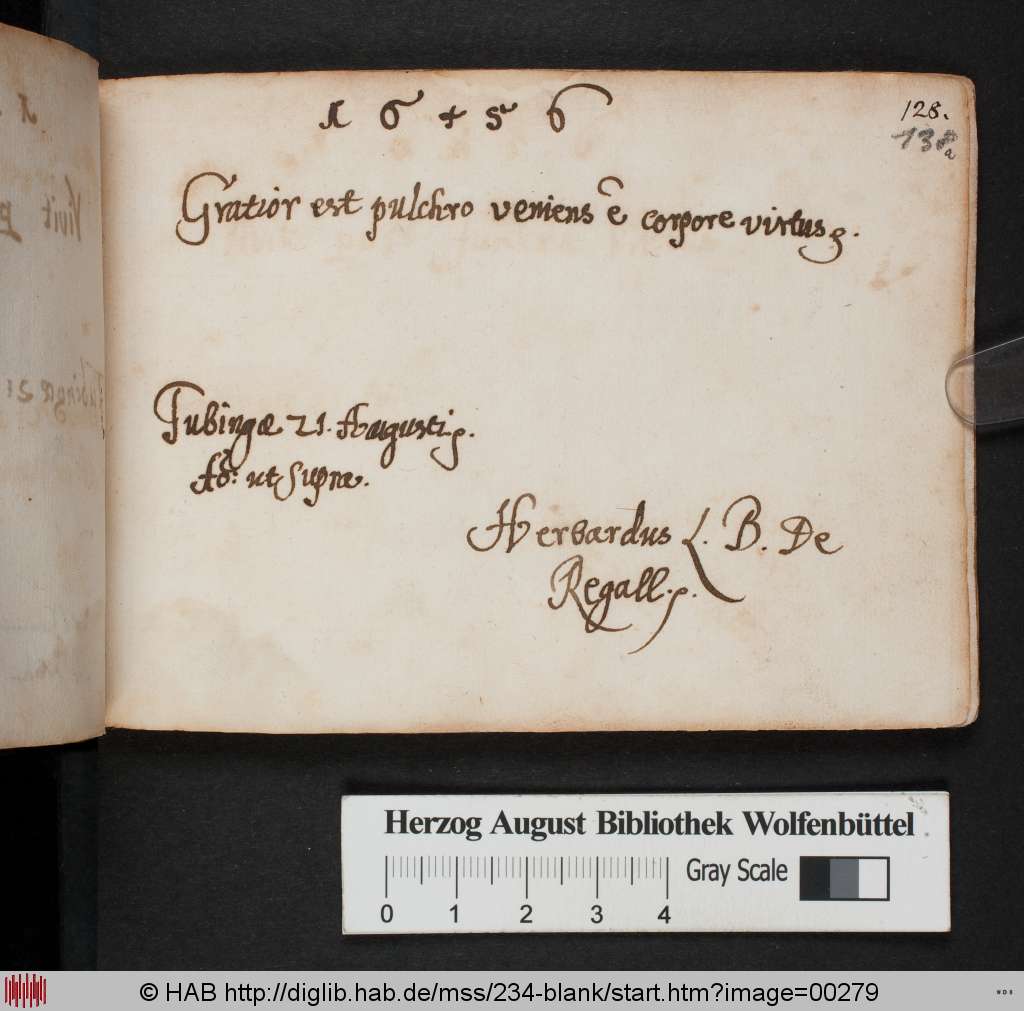 16 + 56
128.
138
a
Gratior est pulchro veniens ê corpore virtus.
Tubingæ 21. Augusti.
Aõ: ut Supra.
Herbardus L. B. De
Regall.
Herzog August Bibliothek Wolfenbüttel
Gray Scale
0 1 2 3 4
© HAB http://diglib.hab.de/mss/234-blank/start.htm?image=00279